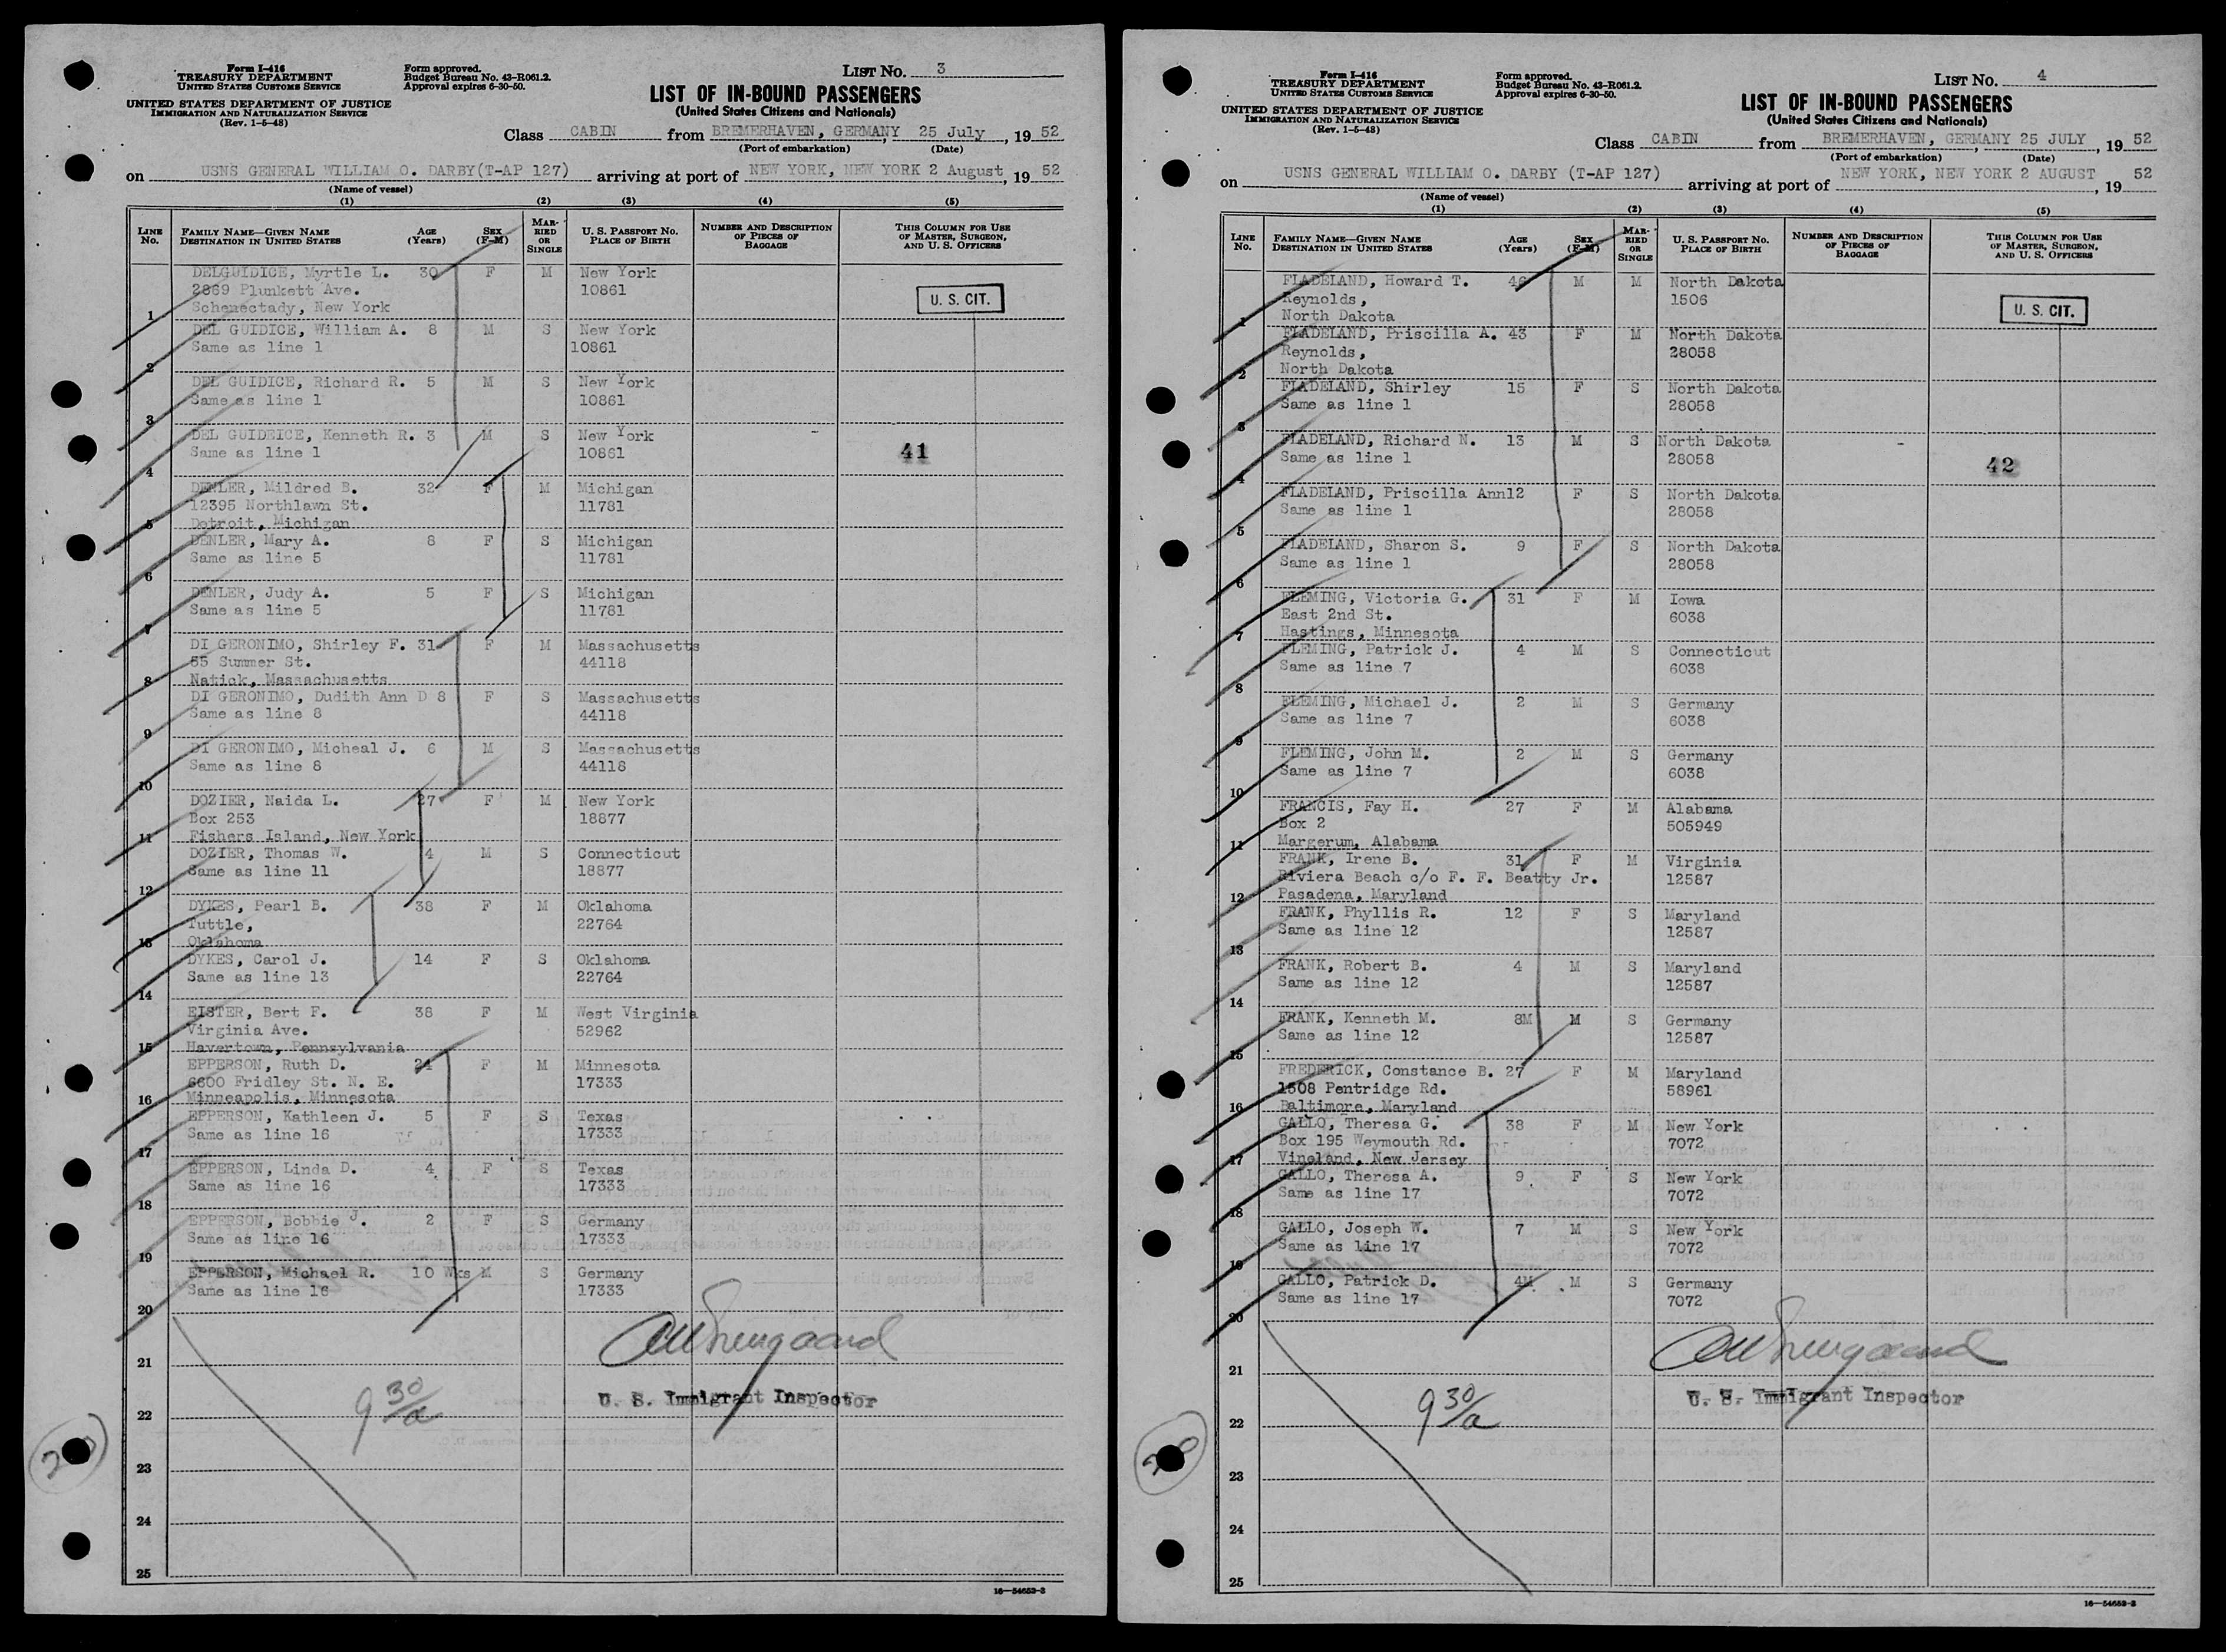 Form I-416
TREASURY DEPARTMENT
UNITED STATES CUSTOMS SERVICE
UNITED STATES DEPARTMENT OF JUSTICE
IMMIGRATION AND NATURALIZATION SERVICE
(Rev. 1-5-48)
Form approved.
Budget Bureau No. 43-R061.2.
Approval expires 6-30-50.
LIST No. 3
LIST OF IN-BOUND PASSENGERS
(United States Citizens and Nationals)
Class CABIN from BREMERHAVEN, GERMANY, 25 July, 19 52
(Port of embarkation) (Date)
on USNS GENERAL WILLIAM O. DARBY(T-AP 127) arriving at port of NEW YORK, NEW YORK 2 August, 19 52
(Name of vessel)
(1) (2) (3) (4) (5)
LINE No. FAMILY NAME—GIVEN NAME DESTINATION IN UNITED STATES AGE (Years) SEX (F-M) MARRIED OR SINGLE U. S. PASSPORT No. PLACE OF BIRTH NUMBER AND DESCRIPTION OF PIECES OF BAGGAGE THIS COLUMN FOR USE OF MASTER, SURGEON, AND U. S. OFFICERS
DELGUIDICE, Myrtle L. 30 F M New York
2869 Plunkett Ave. 10861 U. S. CIT.
1 Schenectady, New York
DEL GUIDICE, William A. 8 M S New York
Same as line 1 10861
2
DEL GUIDICE, Richard R. 5 M S New York
Same as line 1 10861
3
DEL GUIDEICE, Kenneth R. 3 M S New York
Same as line 1 10861 41
4
DENLER, Mildred B. 32 F M Michigan
12395 Northlawn St. 11781
5 Detroit, Michigan
DENLER, Mary A. 8 F S Michigan
Same as line 5 11781
6
DENLER, Judy A. 5 F S Michigan
Same as line 5 11781
7
DI GERONIMO, Shirley F. 31 F M Massachusetts
55 Summer St. 44118
8 Natick, Massachusetts
DI GERONIMO, Dudith Ann D 8 F S Massachusetts
Same as line 8 44118
9
DI GERONIMO, Micheal J. 6 M S Massachusetts
Same as line 8 44118
10
DOZIER, Naida L. 27 F M New York
Box 253 18877
11 Fishers Island, New York
DOZIER, Thomas W. 4 M S Connecticut
Same as line 11 18877
12
DYKES, Pearl B. 38 F M Oklahoma
Tuttle, 22764
13 Oklahoma
DYKES, Carol J. 14 F S Oklahoma
Same as line 13 22764
14
EISTER, Bert F. 38 F M West Virginia
Virginia Ave. 52962
15 Havertown, Pennsylvania
EPPERSON, Ruth D. 24 F M Minnesota
6600 Fridley St. N. E. 17333
16 Minneapolis, Minnesota
EPPERSON, Kathleen J. 5 F S Texas
Same as line 16 17333
17
EPPERSON, Linda D. 4 F S Texas
Same as line 16 17333
18
EPPERSON, Bobbie J. 2 F S Germany
Same as line 16 17333
19
EPPERSON, Michael R. 10 Wks M S Germany
Same as line 16 17333
20
21
U. S. Immigrant Inspector
9 30/a
22
23
24
25
16—54652-3
Form I-416
TREASURY DEPARTMENT
UNITED STATES CUSTOMS SERVICE
UNITED STATES DEPARTMENT OF JUSTICE
IMMIGRATION AND NATURALIZATION SERVICE
(Rev. 1-5-48)
Form approved.
Budget Bureau No. 43-R061.2.
Approval expires 6-30-50.
LIST No. 4
LIST OF IN-BOUND PASSENGERS
(United States Citizens and Nationals)
Class CABIN from BREMERHAVEN, GERMANY 25 JULY, 19 52
(Port of embarkation) (Date)
on USNS GENERAL WILLIAM O. DARBY (T-AP 127) arriving at port of NEW YORK, NEW YORK 2 AUGUST, 19 52
(Name of vessel)
(1) (2) (3) (4) (5)
LINE No. FAMILY NAME—GIVEN NAME DESTINATION IN UNITED STATES AGE (Years) SEX (F-M) MARRIED OR SINGLE U. S. PASSPORT No. PLACE OF BIRTH NUMBER AND DESCRIPTION OF PIECES OF BAGGAGE THIS COLUMN FOR USE OF MASTER, SURGEON, AND U. S. OFFICERS
FLADELAND, Howard T. 46 M M North Dakota
Reynolds, 1506 U. S. CIT.
1 North Dakota
FLADELAND, Priscilla A. 43 F M North Dakota
Reynolds, 28058
2 North Dakota
FLADELAND, Shirley 15 F S North Dakota
Same as line 1 28058
3
FLADELAND, Richard N. 13 M S North Dakota
Same as line 1 28058 42
4
FLADELAND, Priscilla Ann12 F S North Dakota
Same as line 1 28058
5
FLADELAND, Sharon S. 9 F S North Dakota
Same as line 1 28058
6
FLEMING, Victoria G. 31 F M Iowa
East 2nd St. 6038
7 Hastings, Minnesota
FLEMING, Patrick J. 4 M S Connecticut
Same as line 7 6038
8
FLEMING, Michael J. 2 M S Germany
Same as line 7 6038
9
FLEMING, John M. 2 M S Germany
Same as line 7 6038
10
FRANCIS, Fay H. 27 F M Alabama
Box 2 505949
11 Margerum, Alabama
FRANK, Irene B. 31 F M Virginia
Riviera Beach c/o F. F. Beatty Jr. 12587
12 Pasadena, Maryland
FRANK, Phyllis R. 12 F S Maryland
Same as line 12 12587
13
FRANK, Robert B. 4 M S Maryland
Same as line 12 12587
14
FRANK, Kenneth M. 8M M S Germany
Same as line 12 12587
15
FREDERICK, Constance B. 27 F M Maryland
1508 Pentridge Rd. 58961
16 Baltimore, Maryland
GALLO, Theresa G. 38 F M New York
Box 195 Weymouth Rd. 7072
17 Vineland, New Jersey
GALLO, Theresa A. 9 F S New York
Same as line 17 7072
18
GALLO, Joseph W. 7 M S New York
Same as line 17 7072
19
GALLO, Patrick D. 4M M S Germany
Same as line 17 7072
20
21
U. S. Immigrant Inspector
9 30/a
22
20
23
24
25
16—54652-3